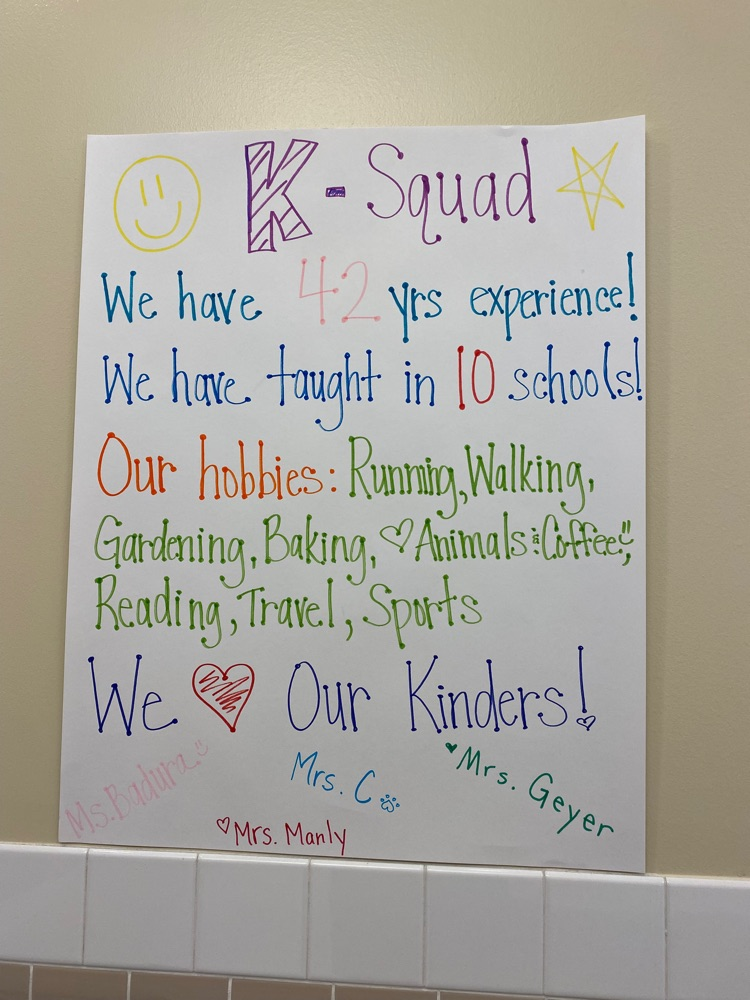 K-Squad
We have 42 yrs experience!
We have taught in 10 schools!
Our hobbies: Running, Walking,
Gardening, Baking, ♡Animals & Coffee!,
Reading, Travel, Sports
We ♥ Our Kinders!
Ms. Badura
Mrs. C
♥Mrs. Geyer
♡Mrs. Manly